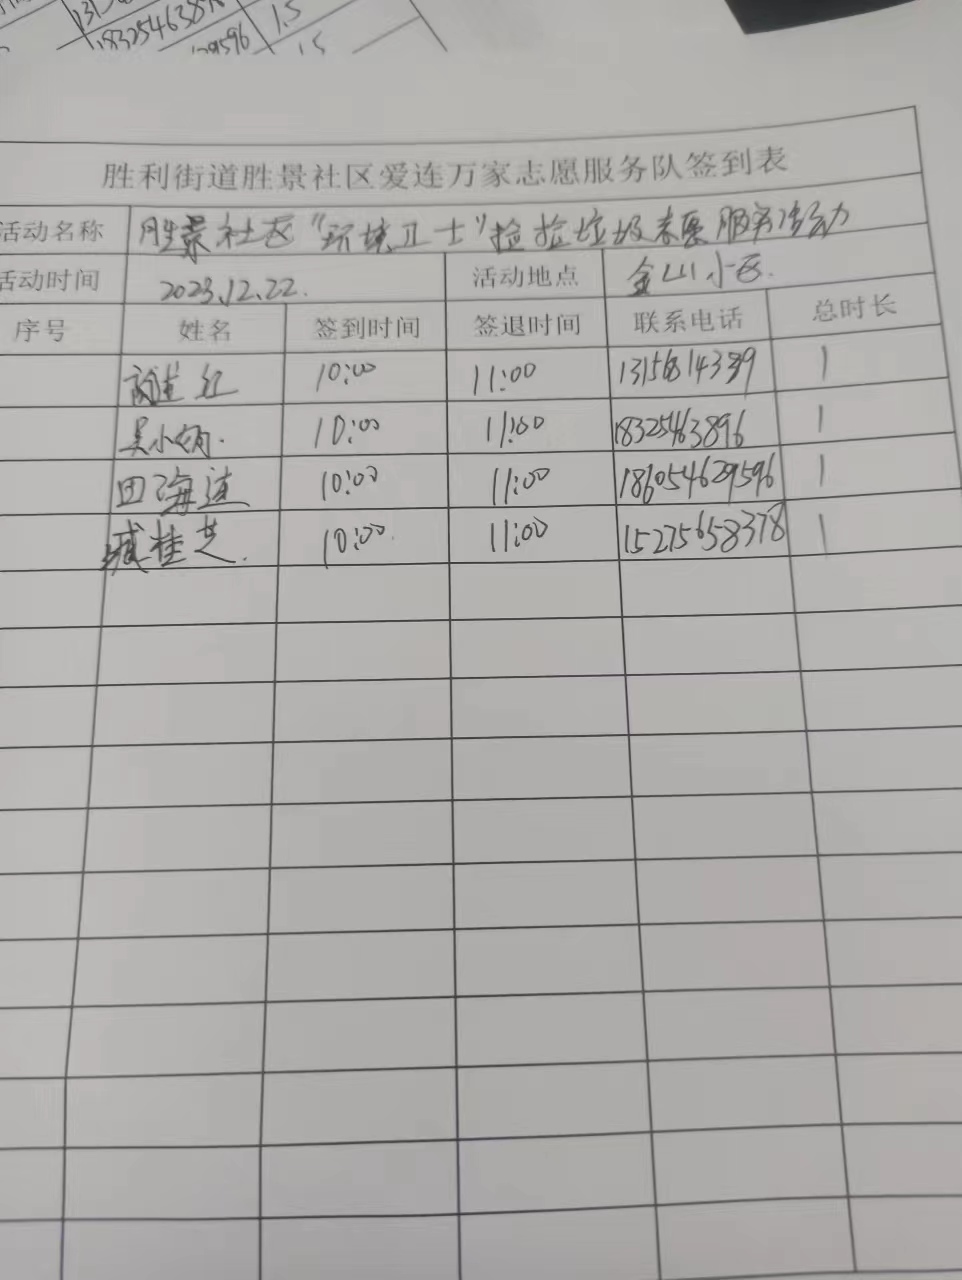 18325463896
1.5
1.5
胜利街道胜景社区爱连万家志愿服务队签到表
活动名称 胜景社区“环境卫士”捡捡垃圾志愿服务活动
活动时间 2023.12.22. 活动地点 金山小区.
序号 姓名 签到时间 签退时间 联系电话 总时长
红 10:00 11:00 1
吴小娟. 10:00 11:00 18325463896 1
田海莲 10:00 11:00 186054629596 1
臧桂芝. 10:00. 11:00 15275658378 1